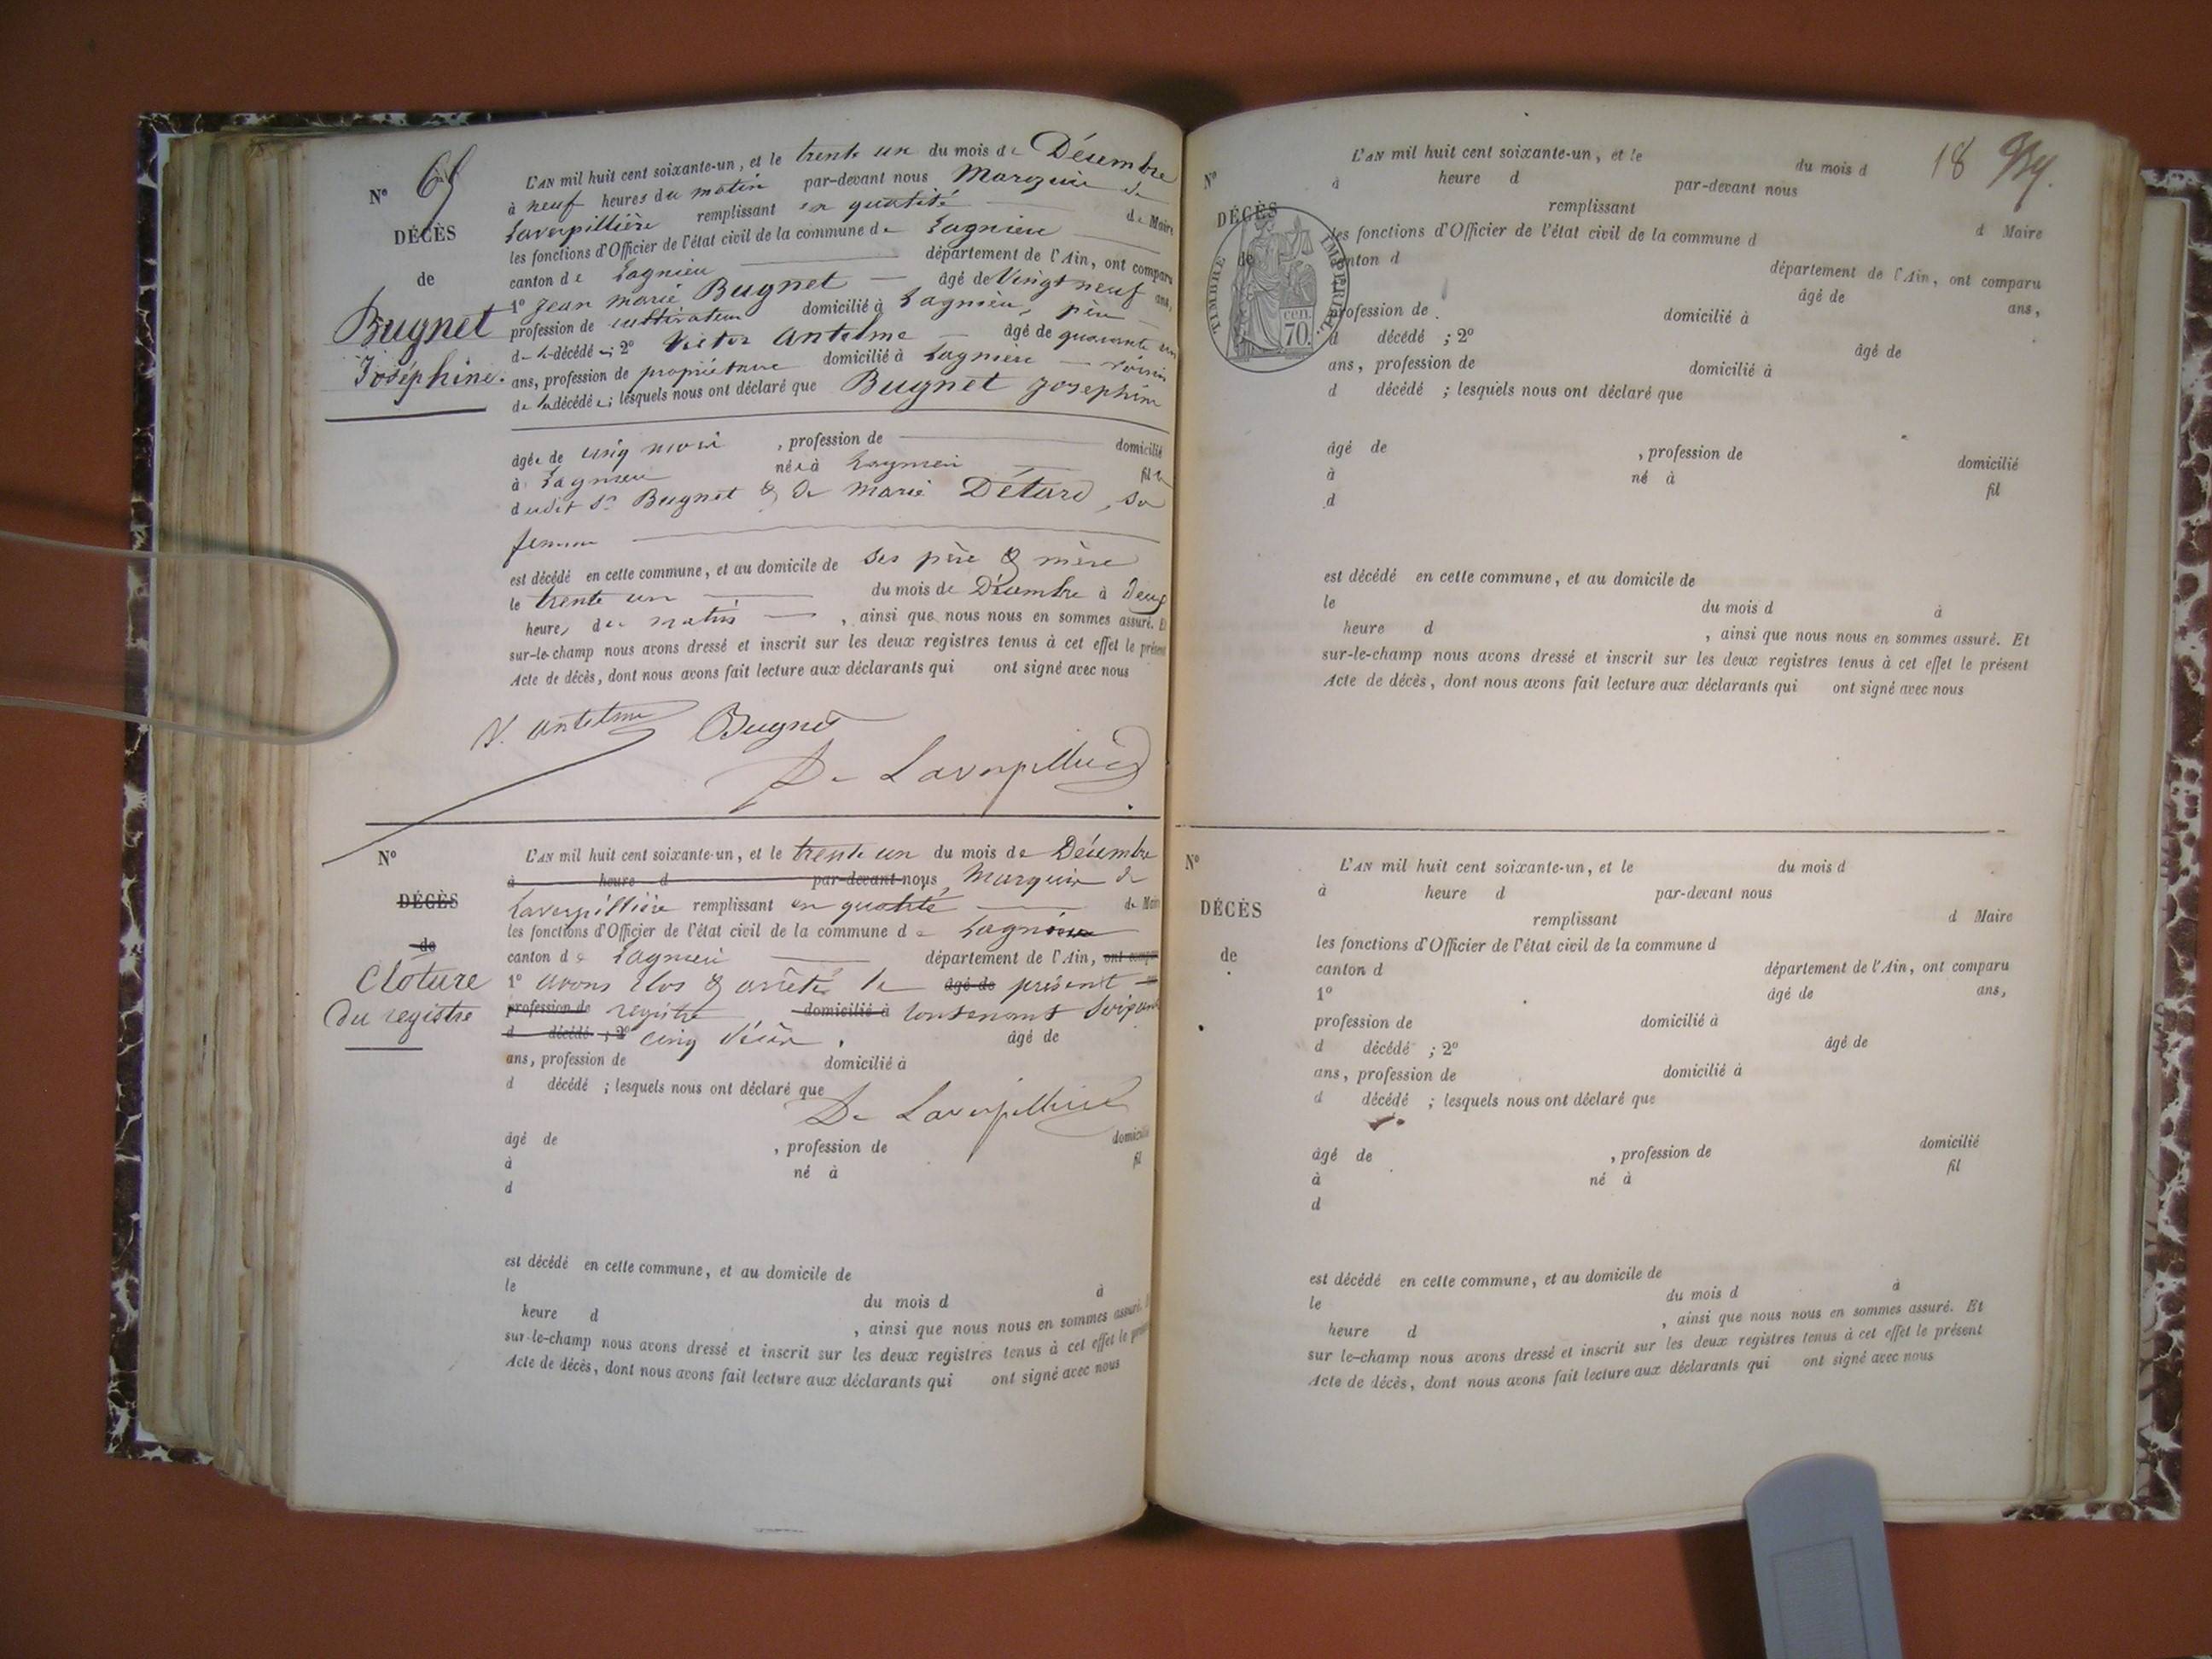 N° 65
DÉCÈS
de
Bugnet
Joséphine.
L'AN mil huit cent soixante-un, et le trente un du mois de Décembre
à neuf heures du matin par-devant nous Marquis de
Laverpillière remplissant en qualité de Maire
les fonctions d'Officier de l'état civil de la commune de Lagnieu
canton de Lagnieu département de l'Ain, ont comparu
1° Jean marie Bugnet âgé de Vingt neuf ans,
profession de cultivateur domicilié à Lagnieu, père
de la décédée; 2° Victor Antelme âgé de quarante un
ans, profession de propriétaire domicilié à Lagnieu voisin
de la décédée; lesquels nous ont déclaré que Bugnet Josephine
âgée de cinq mois, profession de domicilié
à Lagnieu née à Lagnieu fille
dudit Sr Bugnet & de Marie Détard, sa
femme
est décédé en cette commune, et au domicile de ses père & mère
le trente un du mois de Décembre à Deux
heures du matin, ainsi que nous nous en sommes assuré. Et
sur-le-champ nous avons dressé et inscrit sur les deux registres tenus à cet effet le présent
Acte de décès, dont nous avons fait lecture aux déclarants qui ont signé avec nous
V. Antelme Bugnet
De Laverpillière
N°
DÉCÈS
de
Clôture
du registre
L'AN mil huit cent soixante-un, et le trente un du mois de Décembre
à heure d par-devant nous, Marquis de
Laverpillière remplissant en qualité de Maire
les fonctions d'Officier de l'état civil de la commune de Lagnieu
canton de Lagnieu département de l'Ain, ont comparu
1° avons clos & arrêté le âgé de présent
profession de registre domicilié à contenant Soixante
d décédé ; 2° cinq décès. âgé de
ans, profession de domicilié à
d décédé ; lesquels nous ont déclaré que
De Laverpillière
âgé de , profession de domicilié
à né à fil
d
est décédé en cette commune, et au domicile de
le du mois d à
heure d , ainsi que nous nous en sommes assuré. E
sur-le-champ nous avons dressé et inscrit sur les deux registres tenus à cet effet le présent
Acte de décès, dont nous avons fait lecture aux déclarants qui ont signé avec nous
18
N°
DÉCÈS
de
TIMBRE IMPÉRIAL
70 cen.
L'AN mil huit cent soixante-un, et le du mois d
à heure d par-devant nous
remplissant d Maire
les fonctions d'Officier de l'état civil de la commune d
canton d département de l'Ain, ont comparu
âgé de ans,
profession de domicilié à
d décédé ; 2° âgé de
ans, profession de domicilié à
d décédé ; lesquels nous ont déclaré que
âgé de , profession de domicilié
à né à fil
d
est décédé en cette commune, et au domicile de
le du mois d à
heure d , ainsi que nous nous en sommes assuré. Et
sur-le-champ nous avons dressé et inscrit sur les deux registres tenus à cet effet le présent
Acte de décès, dont nous avons fait lecture aux déclarants qui ont signé avec nous
N°
DÉCÈS
de
L'AN mil huit cent soixante-un, et le du mois d
à heure d par-devant nous
remplissant d Maire
les fonctions d'Officier de l'état civil de la commune d
canton d département de l'Ain, ont comparu
1° âgé de ans,
profession de domicilié à
d décédé ; 2° âgé de
ans, profession de domicilié à
d décédé ; lesquels nous ont déclaré que
âgé de , profession de domicilié
à né à fil
d
est décédé en cette commune, et au domicile de
le du mois d à
heure d , ainsi que nous nous en sommes assuré. Et
sur le-champ nous avons dressé et inscrit sur les deux registres tenus à cet effet le présent
Acte de décès, dont nous avons fait lecture aux déclarants qui ont signé avec nous